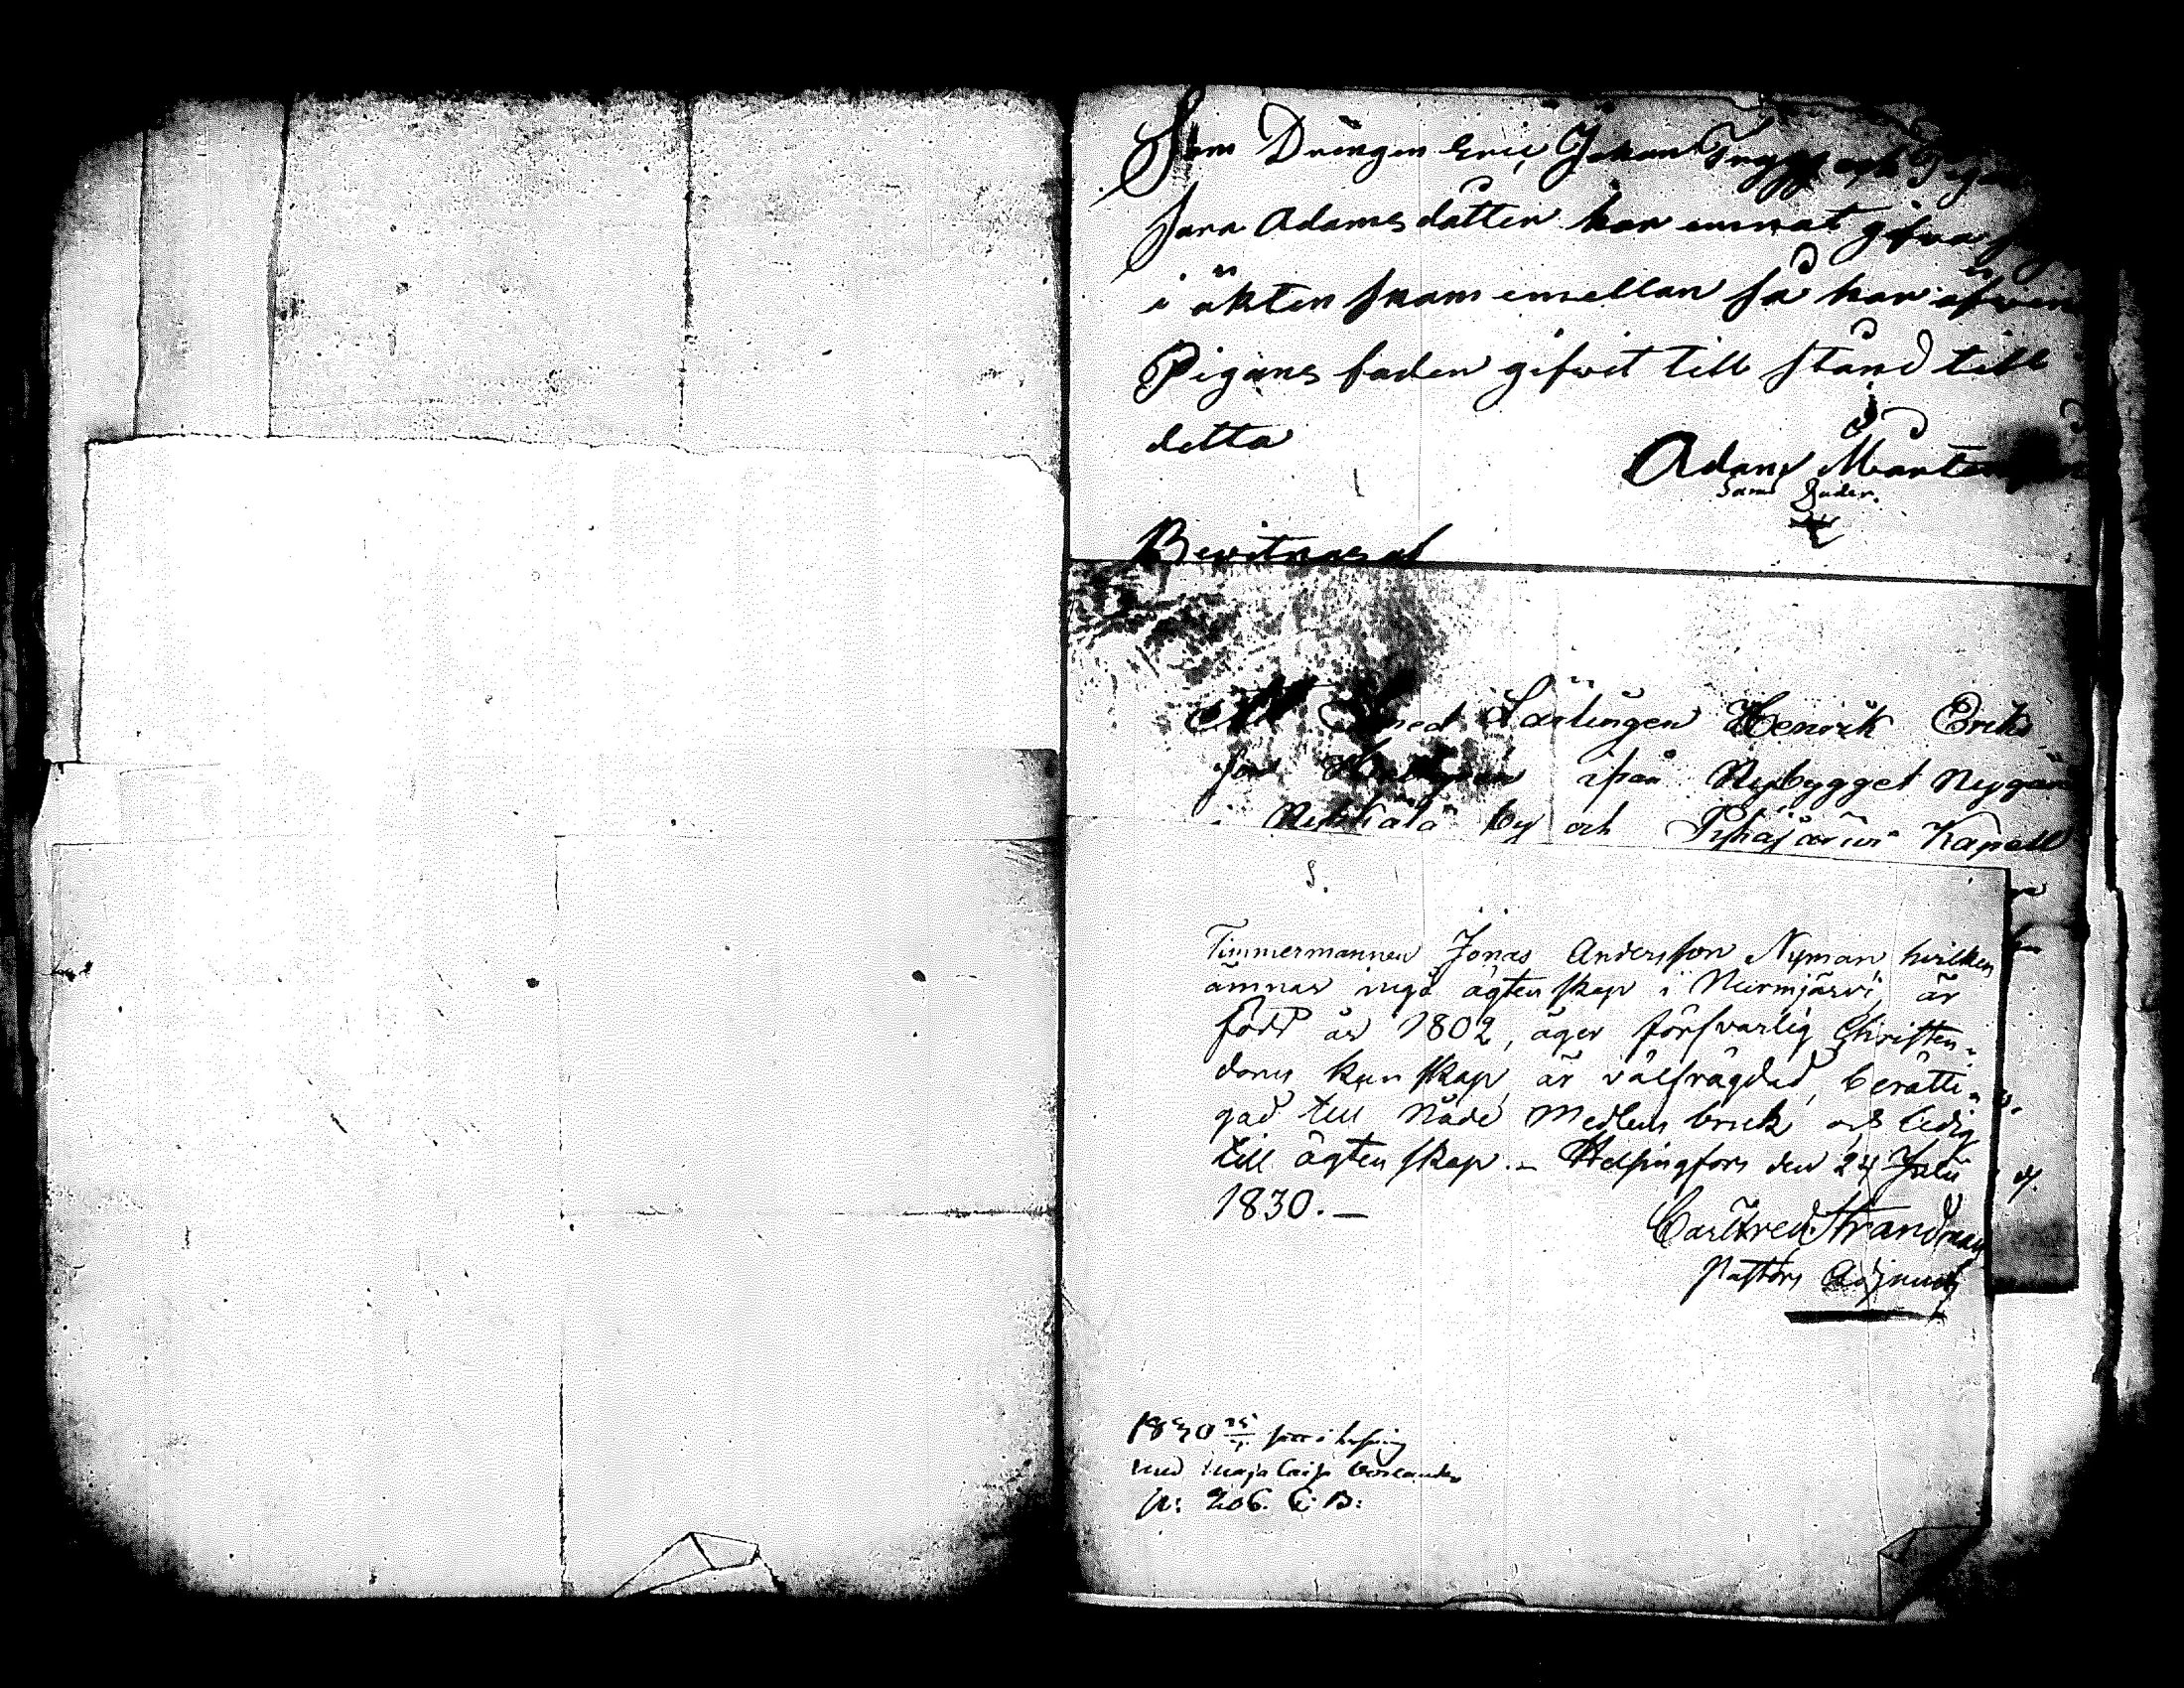 Som Drängen Eric Johan Trygg och Pigan
Sara Adamsdatter har ernnat gifwa sig
i äktenskam emellan så har äfwen
Pigans fader gifwit till stånd till
detta
Adam Mårten
Bewitnas af
Att Smed Lärlingen Henrik Eriks
son ifrån Nybygget Nygård
i by och Pyhäjärwi Kapell
S.
Timmermannen Jonas Andersson Nyman hvilken
ämnar ingå ägtenskap i Nurmijärvi, är
född år 1802, äger försvarlig Christen-
doms kunskap, är välfrägdad, berätti-
gad till Nåde Medlens bruk och ledig
till ägtenskap. – Helsingfors den 24 Julii
1830. –
Carl Fred. Strandman
Pastors Adjunct
1830 satt i lysning
med Maja Caisa
p: 206. C: B: